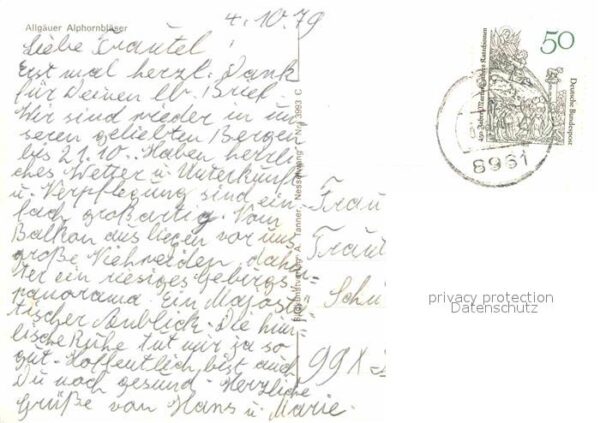 Allgäuer Alphornbläser
4.10.79
Liebe Trautel!
Erst mal herzl. Dank
für Deinen lb. Brief.
Wir sind wieder in un
seren geliebten Bergen
bis 21.10. Haben herrli
ches Wetter u. Unterkunft
u. Verpflegung sind ein
fach großartig. Vom
Balkon aus liegen vor uns
große Viehweiden, dahin
ter ein riesiges Gebirgs-
panorama. Ein Majestä-
tischer Anblick. Die himm
lische Ruhe tut mir ja so
gut. Hoffentlich bist auch
Du noch gesund. Herzliche
Grüße von Hans u. Marie.
A. Tanner, Nesselwang Nr. 3993 C
50
Deutsche Bundespost
8961
Frau
Traute
Schu
99X
privacy protection
Datenschutz